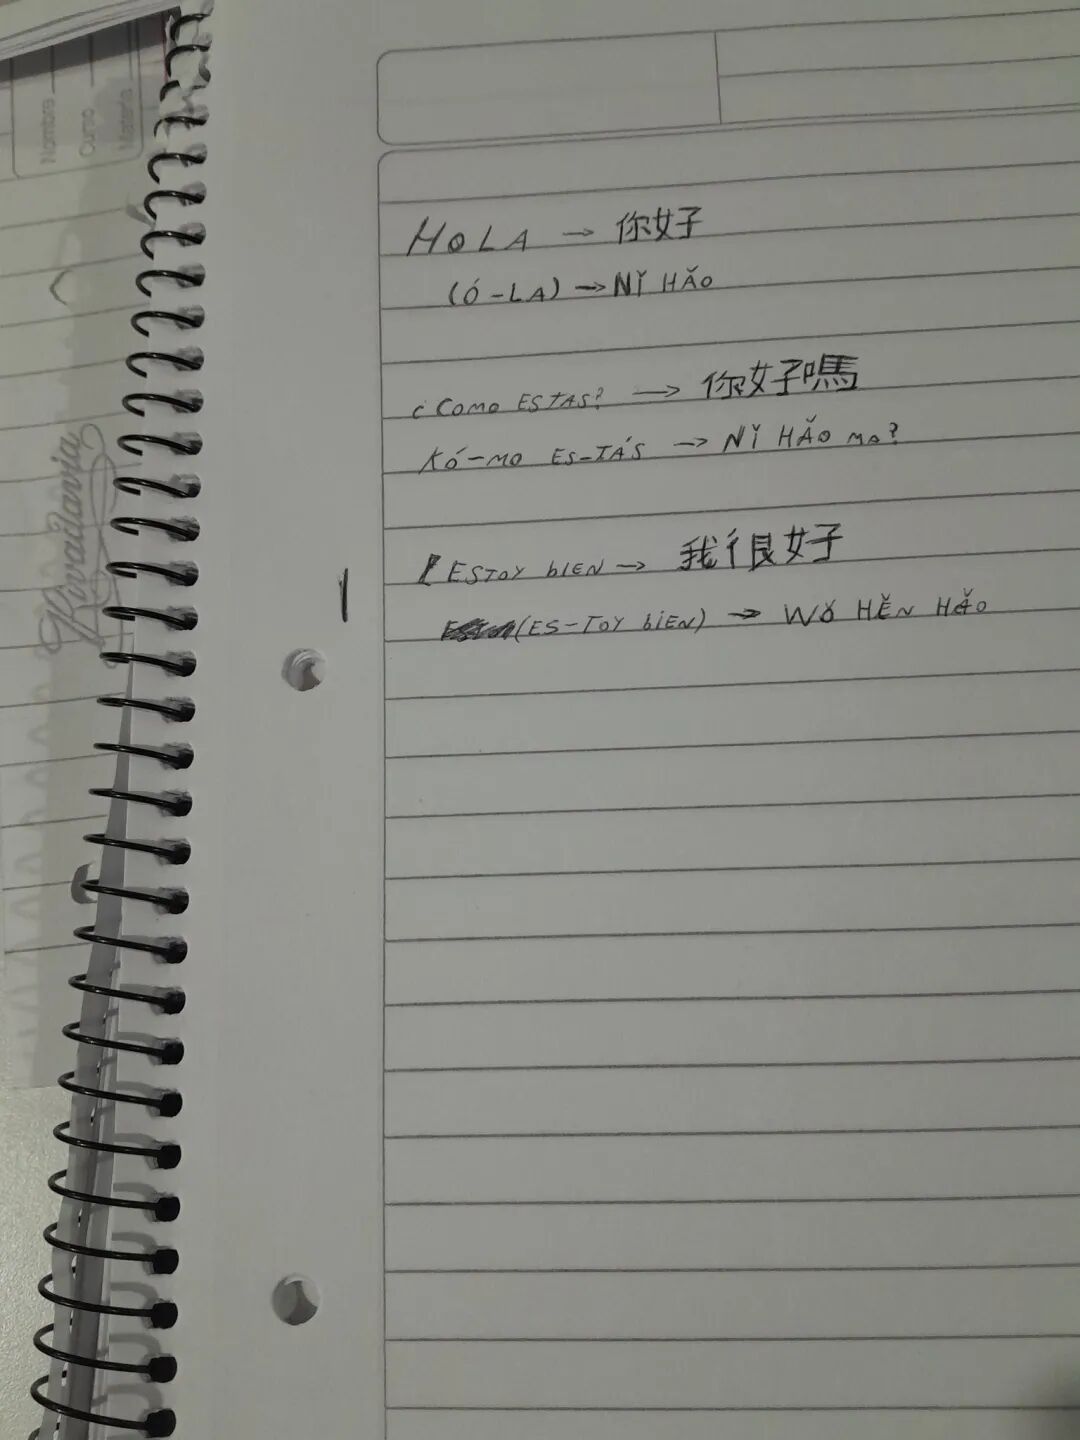 Nombre
Curso
Materia
Rivadavia
HOLA → 你好
(Ó-LA) → NǏ HǍO
¿COMO ESTAS? → 你好嗎
KÓ-MO ES-TÁS → NǏ HǍO MA?
ESTOY bIEN → 我很好
(ES-TOY bIEN) → WǑ HĚN HǍO